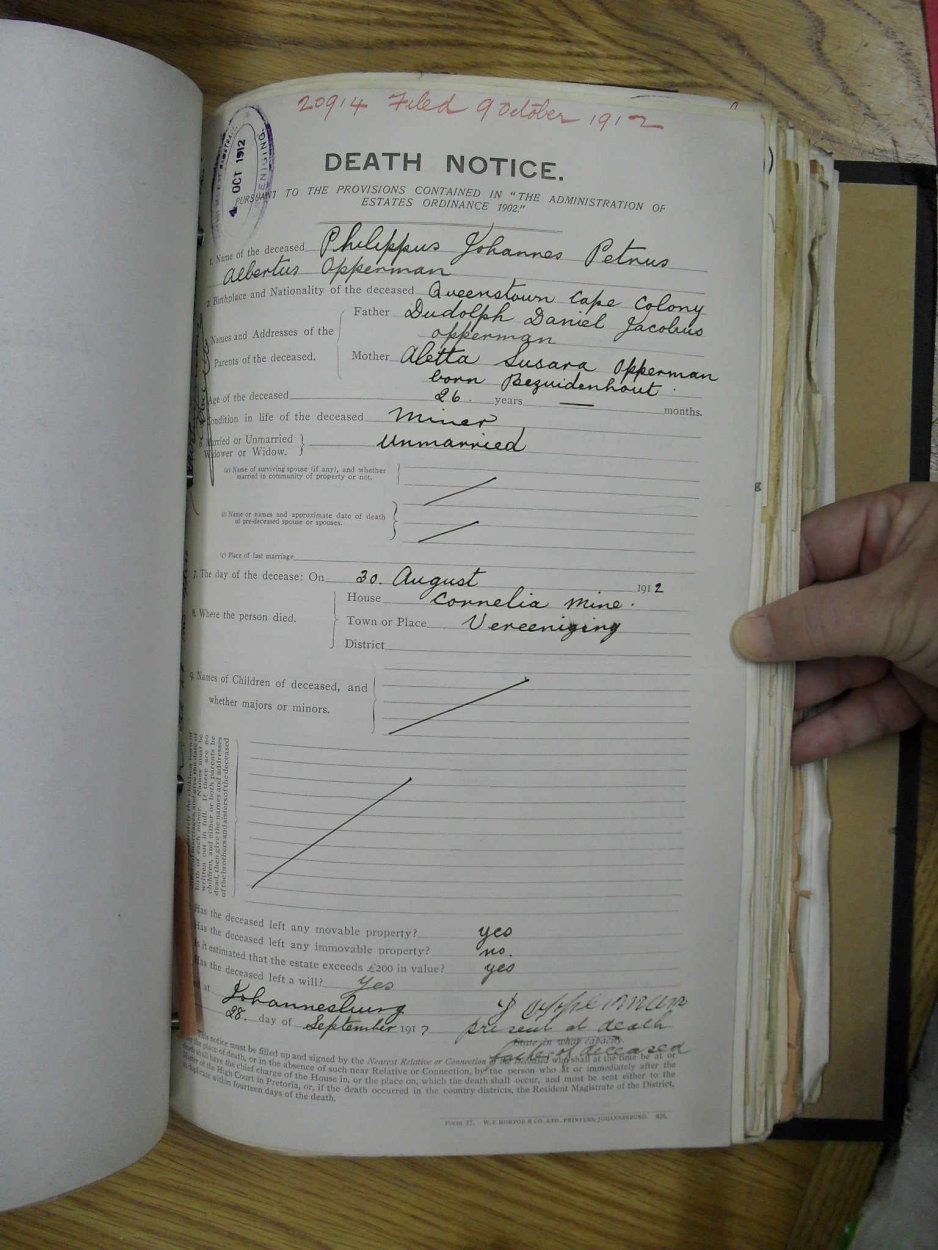 20914 Filed 9 October 1912
4 OCT 1912
DEATH NOTICE.
PURSUANT TO THE PROVISIONS CONTAINED IN "THE ADMINISTRATION OF
ESTATES ORDINANCE 1902."
1. Name of the deceased Philippus Johannes Petrus
Albertus Opperman
2. Birthplace and Nationality of the deceased Queenstown Cape Colony
Names and Addresses of the Parents of the deceased.
Father Dudolph Daniel Jacobus
Opperman
Mother Aletta Susara Opperman
born Bezuidenhout.
Age of the deceased 26. years — months.
Condition in life of the deceased Miner
Married or Unmarried
Widower or Widow. } Unmarried
(a) Name of surviving spouse (if any), and whether
married in community of property or not.
(b) Name or names and approximate date of death
of pre-deceased spouse or spouses.
(c) Place of last marriage
7. The day of the decease: On 30. August 1912
8. Where the person died.
House Cornelia Mine.
Town or Place Vereeniging
District
9. Names of Children of deceased, and
whether majors or minors.
written out in full. If there are no
children, and either or both parents be
dead, then give the names and addresses
of the brothers and sisters of the deceased
Has the deceased left any movable property? yes
Has the deceased left any immovable property? no.
Is it estimated that the estate exceeds £200 in value? yes
Has the deceased left a will? Yes
at Johannesburg
28. day of September 191
Opperman
present at death
State in what capacity.
father of deceased
This notice must be filled up and signed by the Nearest Relative or Connection of the deceased who shall at the time be at or
the place of death, or in the absence of such near Relative or Connection, by the person who at or immediately after the
death shall have the chief charge of the House in, or the place on, which the death shall occur, and must be sent either to the
Master of the High Court in Pretoria, or, if the death occurred in the country districts, the Resident Magistrate of the District,
in duplicate within fourteen days of the death.
FORM 37. W. F. HORTOR & CO. LTD., PRINTERS, JOHANNESBURG.